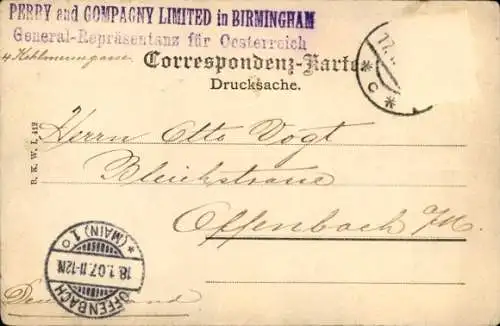 PERRY and COMPAGNY LIMITED in BIRMINGHAM
General-Repräsentanz für Oesterreich
4 Kohlmessergasse
Correspondenz-Karte
Drucksache.
17.
* C *
B. K. W. I. 412
Herrn Otto Vogt
Bleichstrasse
Offenbach /M.
OFFENBACH
18.1.07.11-12N.
* (MAIN) 1 °